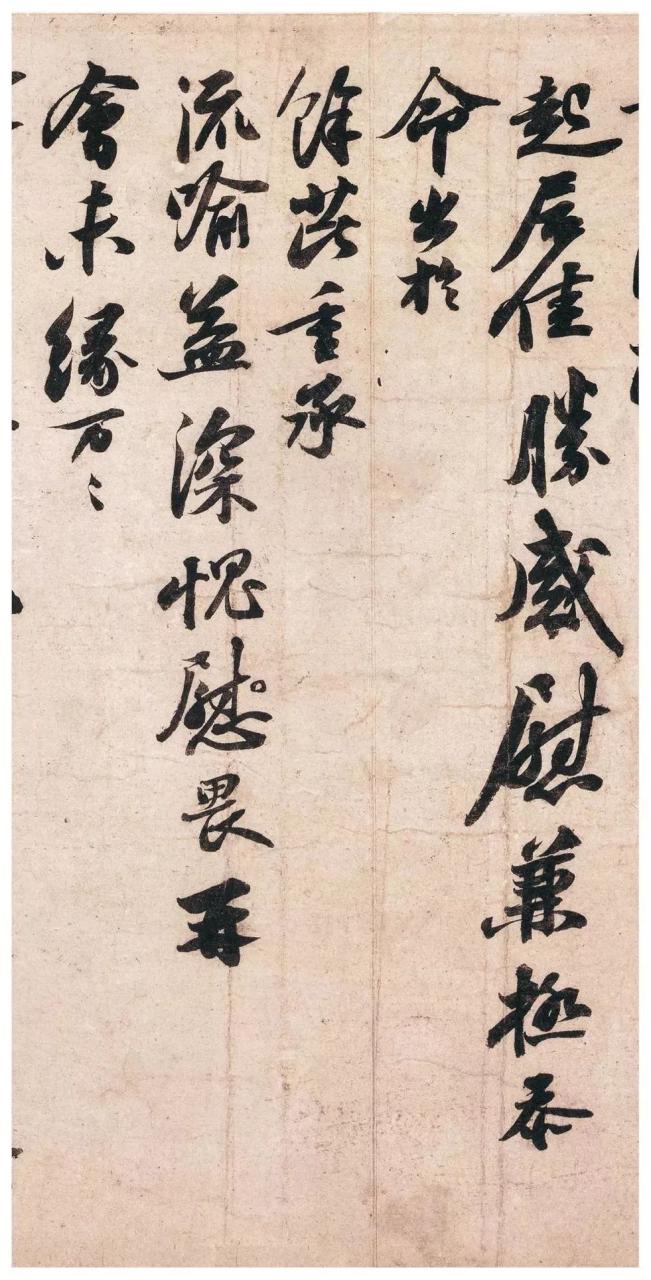 起居佳勝感慰兼極忝
命出於
餘芘重承
流喻益深愧慰畏再
會未緣万〻